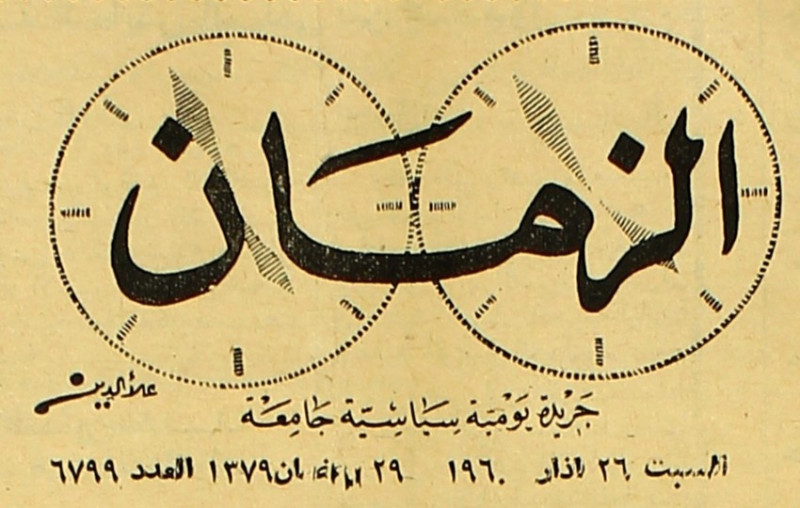 الزمان
علاء الدين
جريدة يومية سياسية جامعة
السبت ٢٦ اذار ١٩٦٠ ٢٩ رمضان ١٣٧٩ العدد ٦٧٩٩